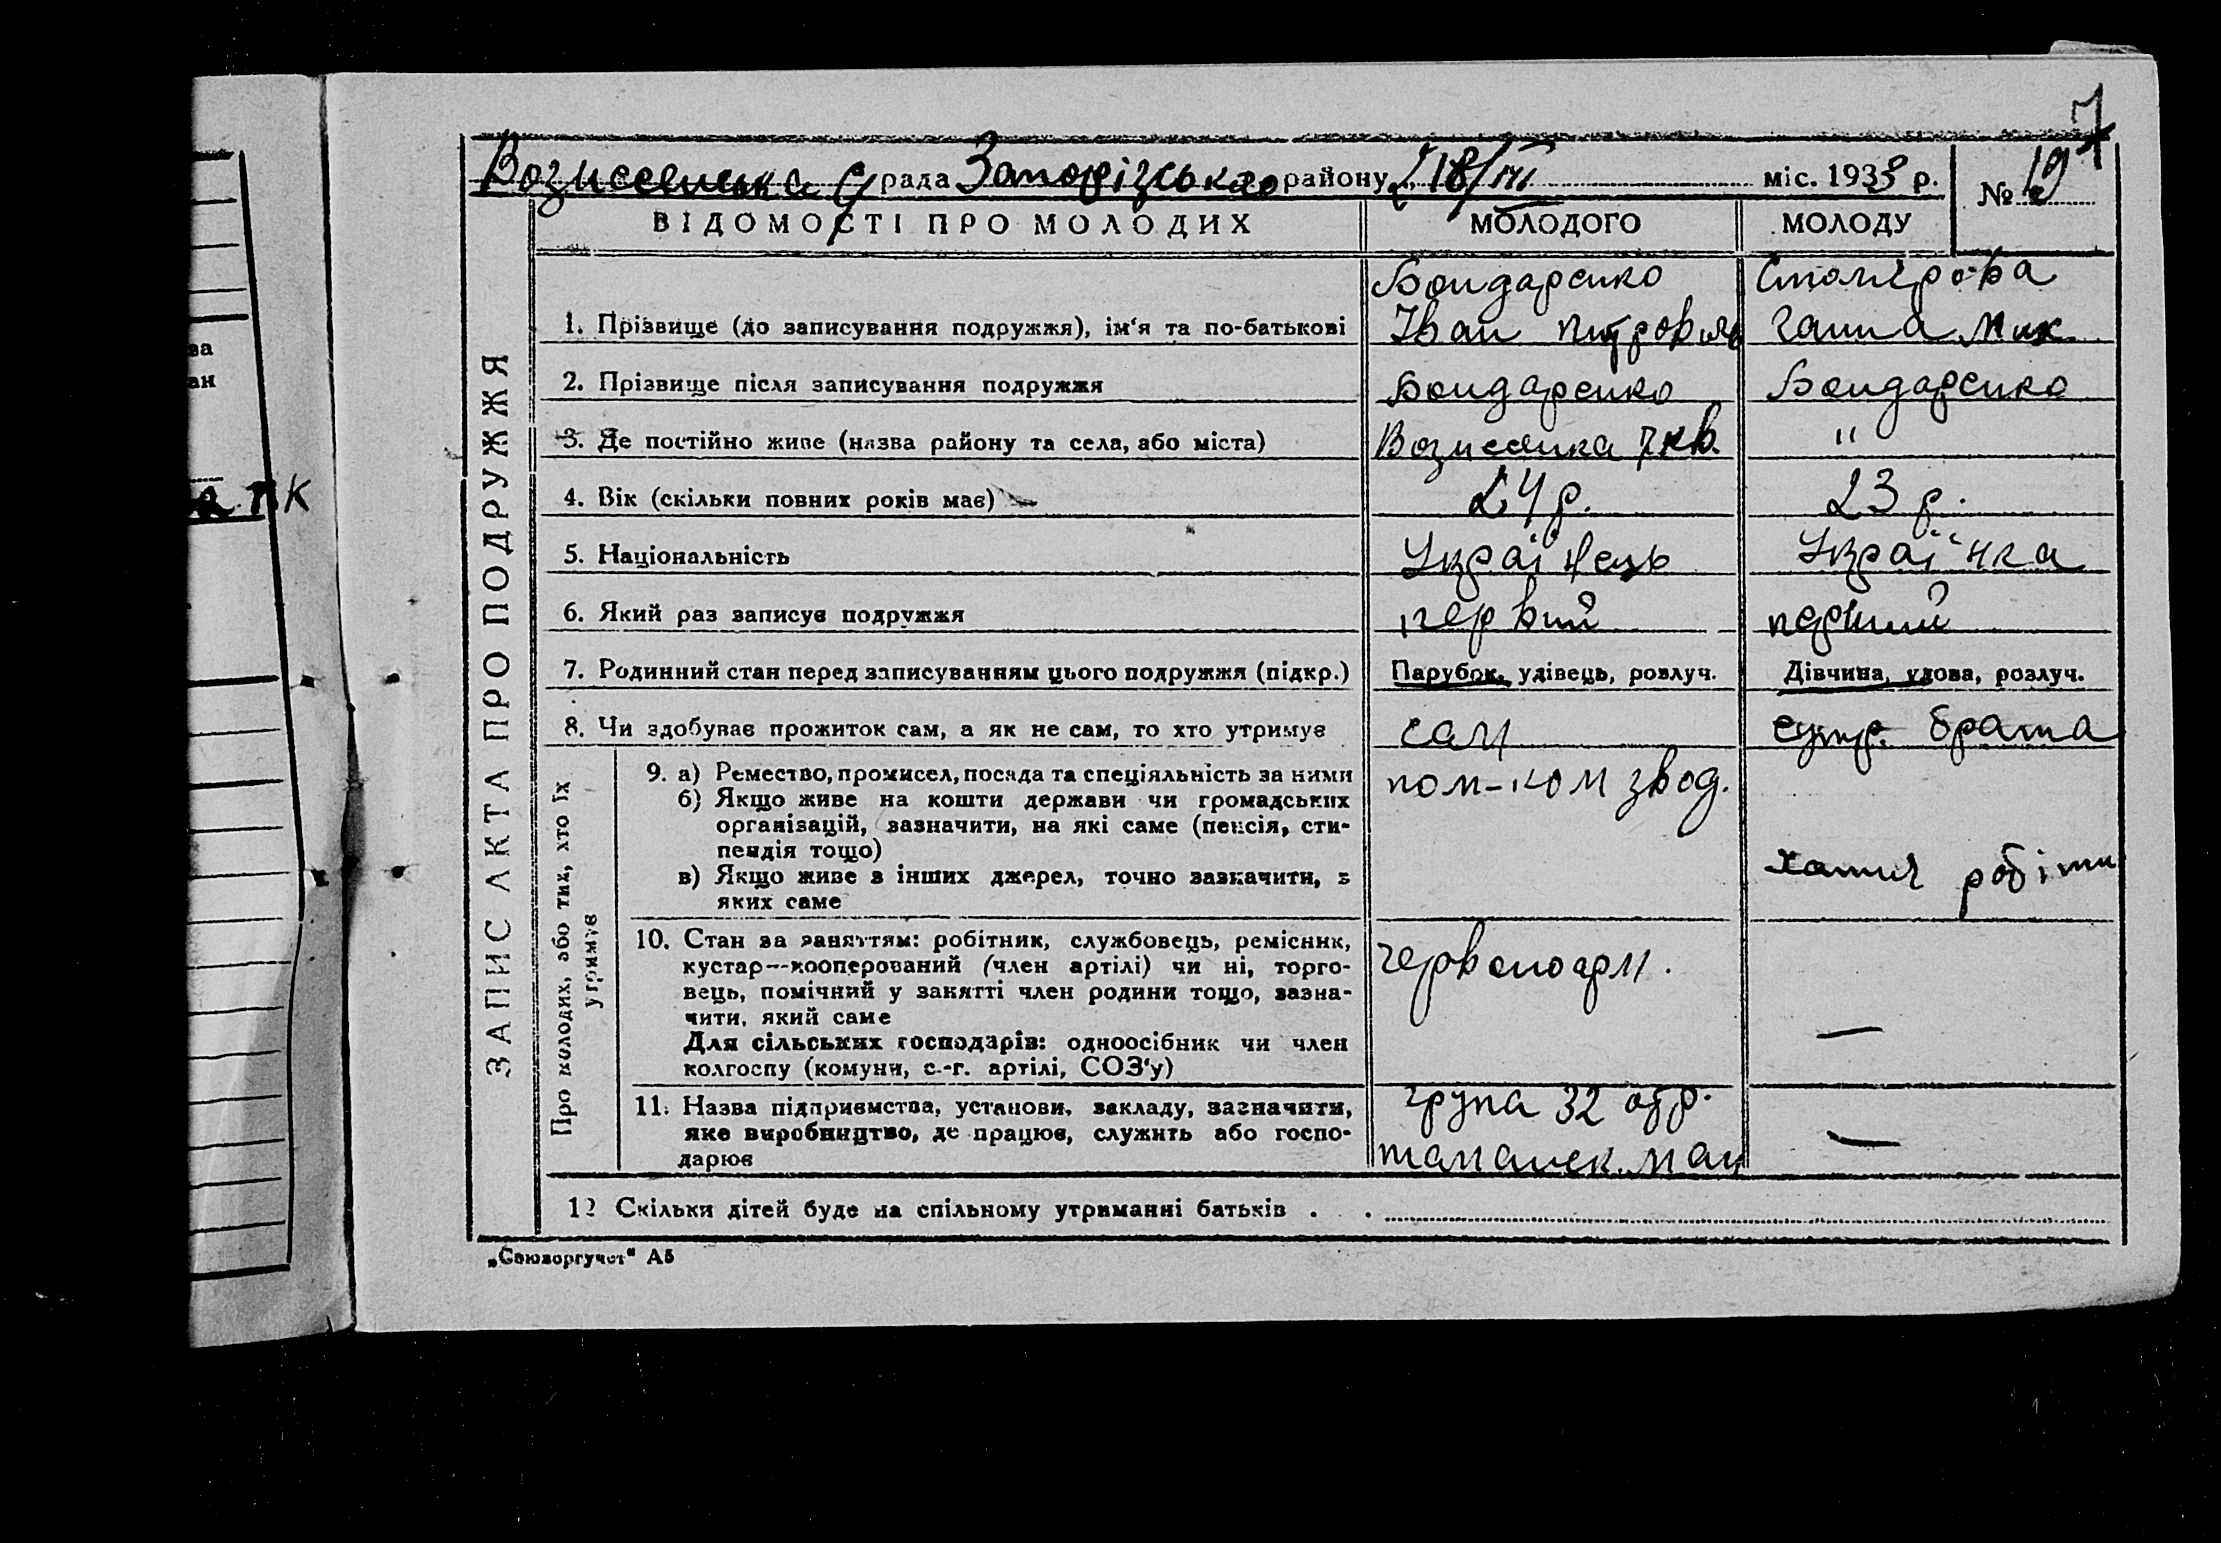 7
Вознесенська С рада Запорізького району 18/III міс. 1933 р. № 19
ВІДОМОСТІ ПРО МОЛОДИХ МОЛОДОГО МОЛОДУ
ЗАПИС АКТА ПРО ПОДРУЖЖЯ
Бондаренко
1. Прізвище (до записування подружжя), ім'я та по-батькові Іван Петрович Ганна Мик
2. Прізвище після записування подружжя Бондаренко Бондаренко
3. Де постійно живе (назва району та села, або міста) Вознесенка 7 кв. "
4. Вік (скільки повних років має) 24 р. 23 р.
5. Національність Українець Українка
6. Який раз записує подружжя первий перший
7. Родинний стан перед записуванням цього подружжя (підкр.) Парубок, удівець, розлуч. Дівчина, удова, розлуч.
8. Чи здобуває прожиток сам, а як не сам, то хто утримує сам брата
Про молодих, або тих, хто їх утримує
9. а) Ремество, промисел, посада та спеціяльність за ними пом-ком звод.
б) Якщо живе на кошти держави чи громадських
організацій, зазначити, на які саме (пенсія, сти-
пендія тощо)
в) Якщо живе з інших джерел, точно зазначити, з
яких саме
10. Стан за заняттям: робітник, службовець, ремісник,
кустар—кооперований (член артілі) чи ні, торго-
вець, помічний у занятті член родини тощо, зазна-
чити, який саме
Для сільських господарів: одноосібник чи член
колгоспу (комуни, с.-г. артілі, СОЗ'у)
червоноарм. —
11. Назва підприємства, установи, закладу, зазначити,
яке виробництво, де працює, служить або госпо-
дарює
група 32 —
12 Скільки дітей буде на спільному утриманні батьків . .
„Союзоргучет" А5
ва
ан